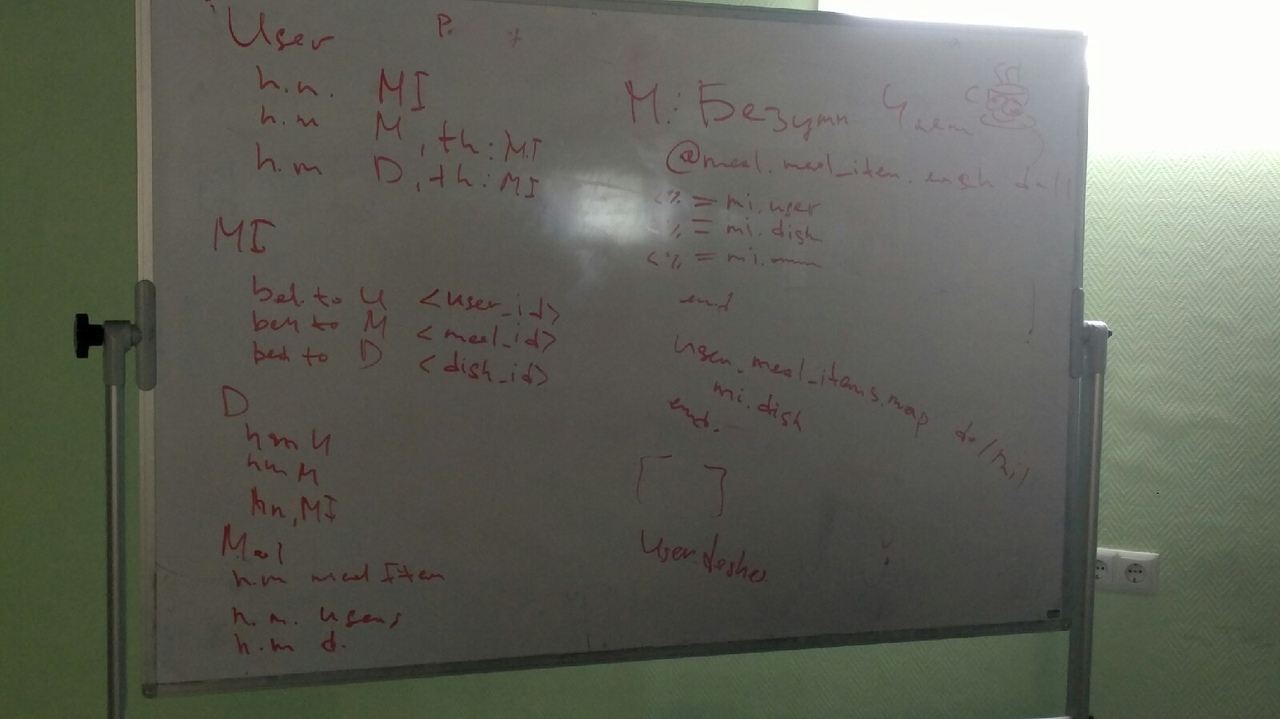 User
h.m. MI
h.m M, th: MI
h.m D, th: MI
MI
bel. to U <user_id>
bel to M <meal_id>
bel to D <dish_id>
D
hm U
hm M
hm, MI
Meal
h.m meal Item
h.m. users
h.m d.
М: Безумн Чаеп
@meal.meal_item.each do
<%= mi.user
%= mi.dish
<%= mi.
end
user.meal_items.map do |mi|
mi.dish
end.
[ ]
User.dishes